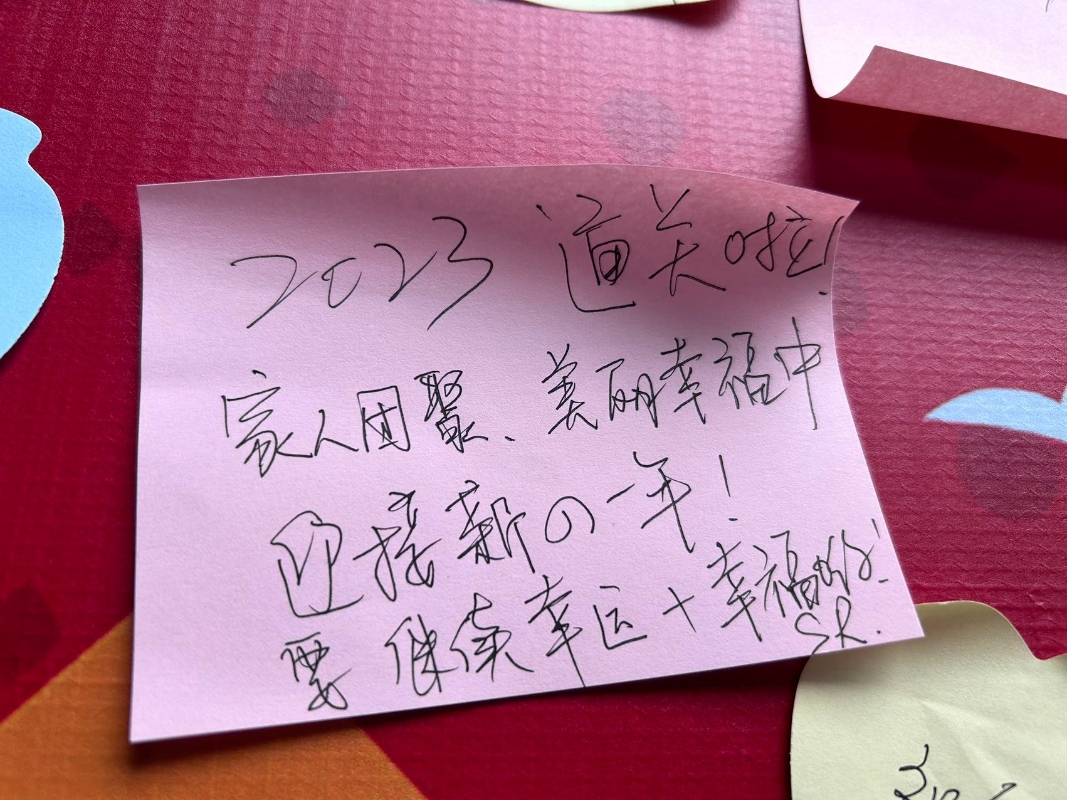 2023 通关啦!
家人团聚、美丽幸福中
迎接新の一年!
要继续幸运+幸福哟!
SR.